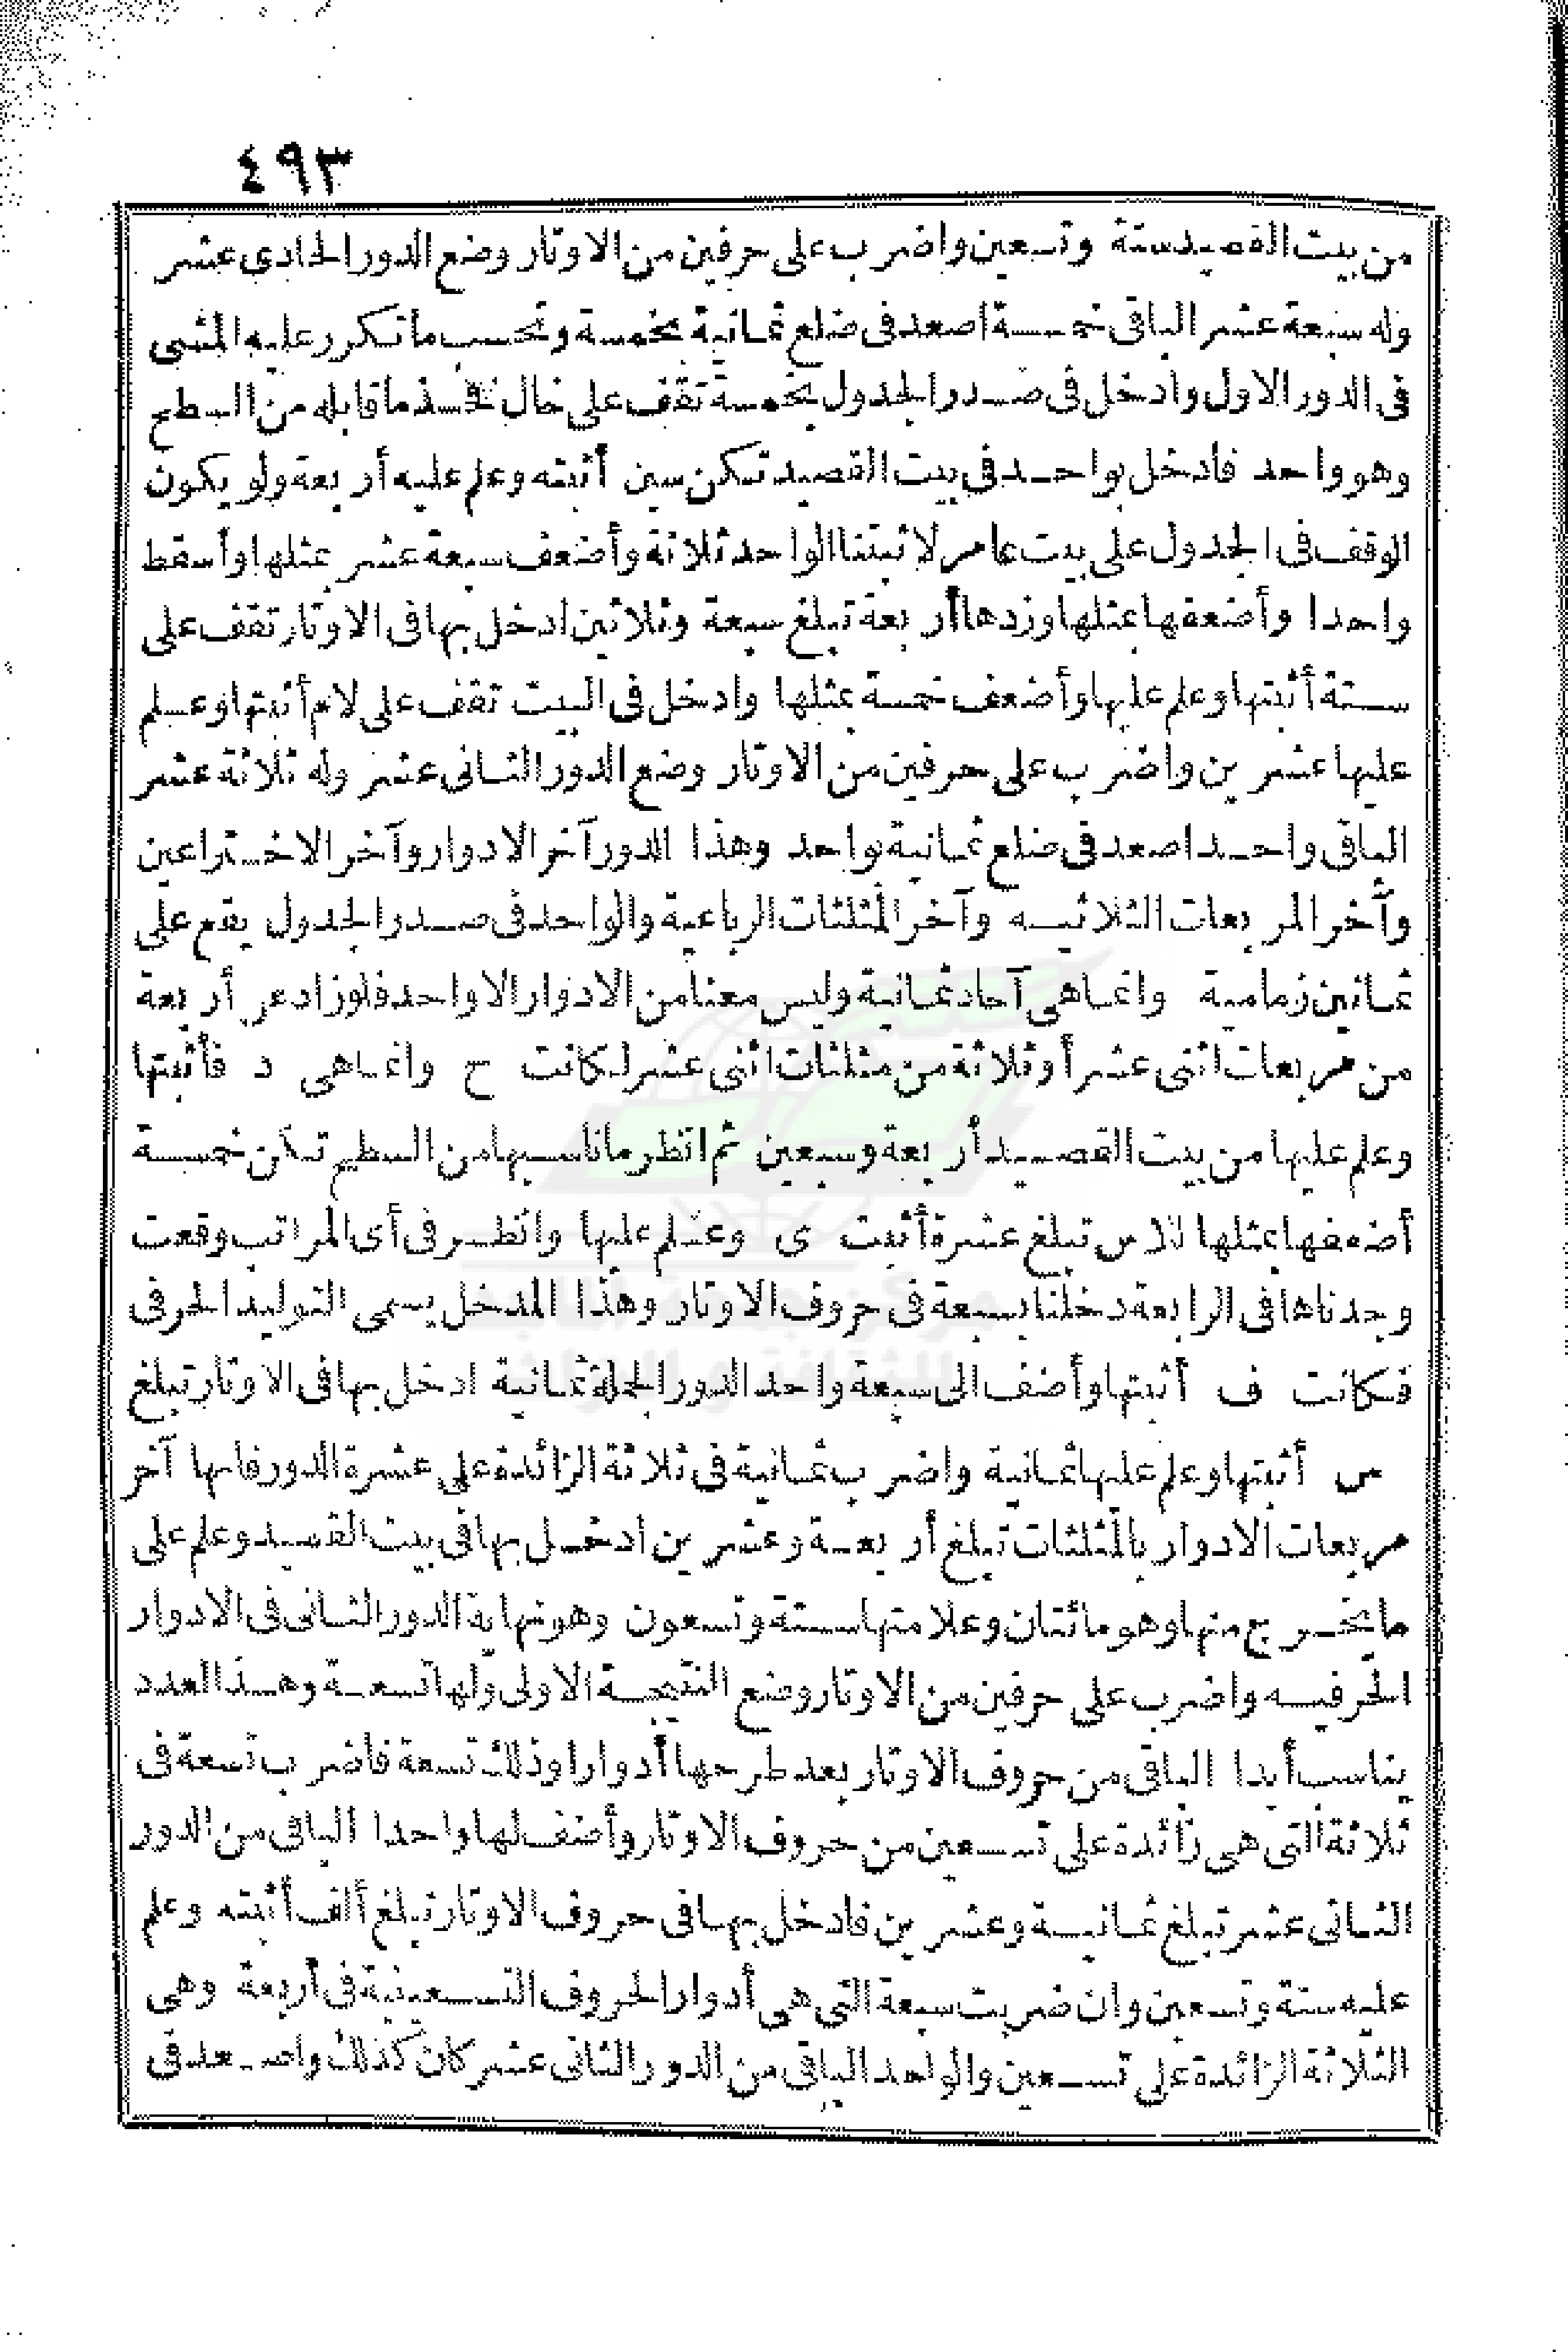 ٤٩٣
من بيت القصيد ستة وتسعين واضرب على حرفين من الاوتار وضع الدور الحادى عشر
وله سبعة عشر الباقى خمسة اصعد فى ضلع ثمانية بخمسة وتحسب ما تكرر عليه المشى
فى الدور الاول وادخل فى صدر الجدول بخمسة تقف على خال فخذ ما قابله من السطح
وهو واحد فادخل بواحد فى بيت القصيد تكن سين أثبته وعلم عليه أربعة ولو يكون
الوقف فى الجدول على بيت عامر لاثبتنا الواحد ثلاثة وأضعف سبعة عشر بمثلها وأسقط
واحدا وأضعفها بمثلها وزدها أربعة تبلغ سبعة وثلاثين ادخل بها فى الاوتار تقف على
ستة أثبتها وعلم عليها وأضعف خمسة بمثلها وادخل فى البيت تقف على لام أثبتها وعلم
عليها عشرين واضرب على حرفين من الاوتار وضع الدور الثانى عشر وله ثلاثة عشر
الباقى واحد اصعد فى ضلع ثمانية بواحد وهذا الدور آخر الادوار وآخر الاختراعين
وآخر المربعات الثلاثيه وآخر المثلثات الرباعية والواحد فى صدر الجدول يقع على
ثمانين زمامية وانما هى آحاد ثمانية وليس معنا من الادوار الا واحد فلو زاد عن أربعة
من مربعات اثنى عشر أو ثلاثة من مثلثات اثنى عشر لكانت ح وانما هى د فأثبتها
وعلم عليها من بيت القصيد أربعة وسبعين ثم انظر ما ناسبها من السطح تكن خمسة
أضعفها بمثلها للاس تبلغ عشرة أثبت ى وعلم عليها وانظر فى أى المراتب وقعت
وجدناها فى الرابعة دخلنا بسبعة فى حروف الاوتار وهذا المدخل يسمى التوليد الحرفى
فكانت ف أثبتها وأضف الى سبعة واحد الدور الجملة ثمانية ادخل بها فى الاوتار تبلغ
س أثبتها وعلم عليها ثمانية واضرب ثمانية فى ثلاثة الزائدة على عشرة الدور فانها آخر
مربعات الادوار بالمثلثات تبلغ أربعة وعشرين ادخل بها فى بيت القصيد وعلم على
ما يخرج منها وهو مائتان وعلامتها ستة وتسعون وهو نهاية الدور الثانى فى الادوار
الحرفيه واضرب على حرفين من الاوتار وضع النتيجة الاولى ولها تسعة وهذا العدد
يناسب أبدا الباقى من حروف الاوتار بعد طرحها أدوارا وذلك تسعة فاضرب تسعة فى
ثلاثة التى هى زائدة على تسعين من حروف الاوتار وأضف لها واحدا الباقى من الدور
الثانى عشر تبلغ ثمانية وعشرين فادخل بها فى حروف الاوتار تبلغ ألف أثبته وعلم
عليه ستة وتسعين وان ضربت سبعة التى هى أدوار الحروف التسعينية فى أربعة وهى
الثلاثة الزائدة على تسعين والواحد الباقى من الدور الثانى عشر كان كذلك واصعد فى